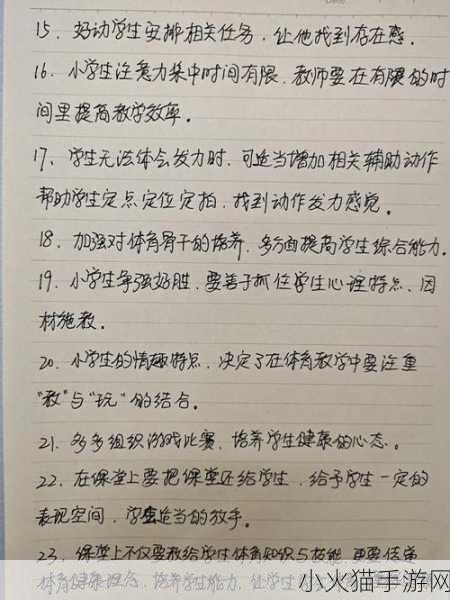 15. 好动学生安排相关任务, 让他找到存在感.
16. 小学生注意力集中时间有限. 教师要在有限的时
间里提高教学效率.
17. 学生无法体会发力时, 可适当增加相关辅助动作
帮助学生定点定位定拍. 找到动作发力感觉.
18. 加强对体育骨干的培养. 多方面提高学生综合能力.
19. 小学生争强好胜. 要善于抓住学生心理特点. 因
材施教.
20. 小学生的情趣特点. 决定了在体育教学中要注重
"教"与"玩"的结合.
21. 多多组织游戏比赛. 培养学生健康的心态.
22. 在课堂上要把课堂还给学生. 给予学生一定的
表现空间. 学适当的放手.
23. 课堂上不仅要教给学生体育知识与技能. 更要传递
体育健康理念. 培养学生能力. 让学生
小火猫手游网